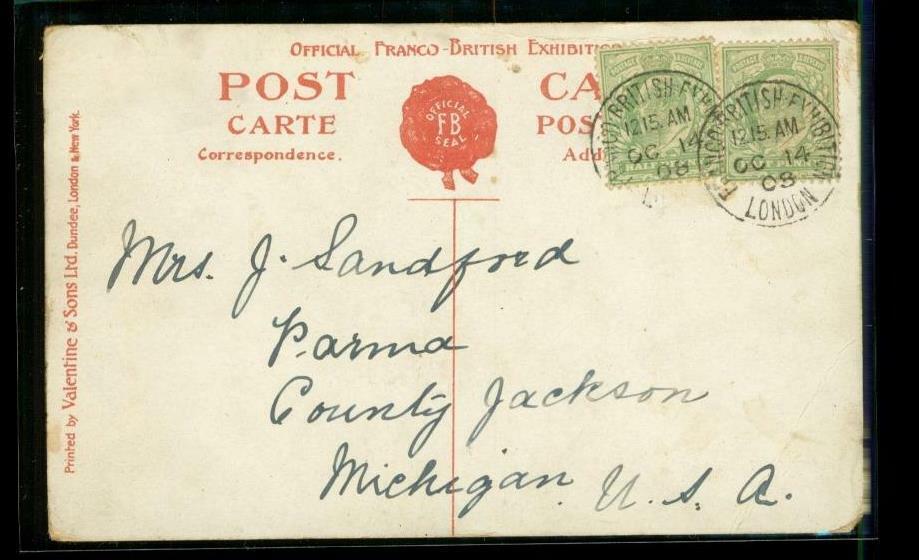 OFFICIAL FRANCO-BRITISH EXHIBITION
POST CA
CARTE POS
Correspondence. Add
OFFICIAL
FB
SEAL
BRITISH·EXH
12 15. AM
OC 14
08
HALF
FRANCO·BRITISH·EXHIBITION
12 15. AM
OC 14
08
LONDON
Mrs. J. Sandford
Parma
County Jackson
Michigan. U. S. A.
Printed by Valentine & Sons Ltd. Dundee, London & New York.